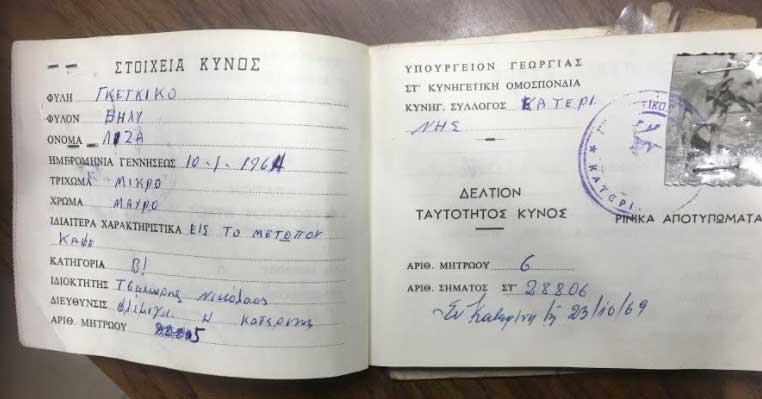 ΣΤΟΙΧΕΙΑ ΚΥΝΟΣ
ΦΥΛΗ ΓΚΕΚΙΚΟ
ΦΥΛΟΝ ΘΗΛΥ
ΟΝΟΜΑ ΛΙΖΑ
ΗΜΕΡΟΜΗΝΙΑ ΓΕΝΝΗΣΕΩΣ 10-1-1964
ΤΡΙΧΩΜΑ ΜΙΚΡΟ
ΧΡΩΜΑ ΜΑΥΡΟ
ΙΔΙΑΙΤΕΡΑ ΧΑΡΑΚΤΗΡΙΣΤΙΚΑ ΕΙΣ ΤΟ ΜΕΤΩΠΟΥ
ΚΑΦΕ
ΚΑΤΗΓΟΡΙΑ Β!
ΙΔΙΟΚΤΗΤΗΣ Νικόλαος
ΔΙΕΥΘΥΝΣΙΣ Κατερίνης
ΑΡΙΘ. ΜΗΤΡΩΟΥ
ΥΠΟΥΡΓΕΙΟΝ ΓΕΩΡΓΙΑΣ
ΣΤ' ΚΥΝΗΓΕΤΙΚΗ ΟΜΟΣΠΟΝΔΙΑ
ΚΥΝΗΓ. ΣΥΛΛΟΓΟΣ ΚΑΤΕΡΙ.
ΝΗΣ
ΚΑΤΕΡΙ
ΔΕΛΤΙΟΝ
ΤΑΥΤΟΤΗΤΟΣ ΚΥΝΟΣ
ΡΙΝΙΚΑ ΑΠΟΤΥΠΩΜΑΤΑ
ΑΡΙΘ. ΜΗΤΡΩΟΥ 6
ΑΡΙΘ. ΣΗΜΑΤΟΣ ΣΤ' 28806
Εν Κατερίνη τη 23/10/69